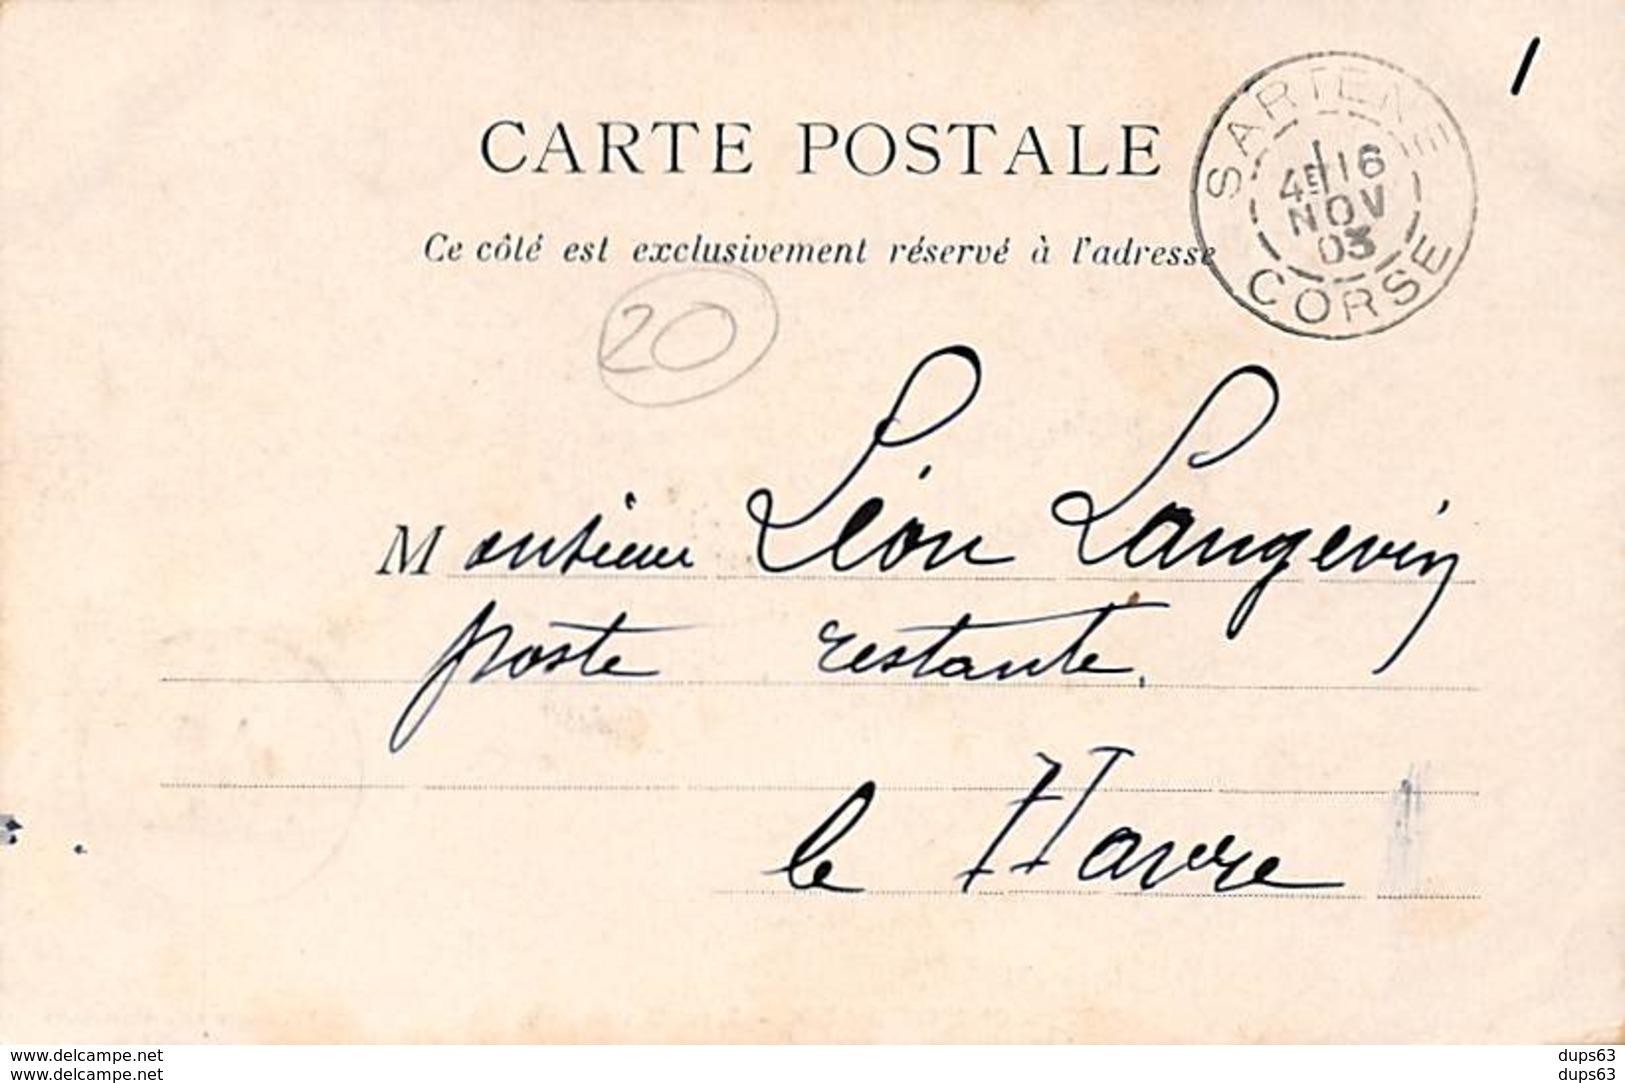 CARTE POSTALE
Ce côté est exclusivement réservé à l'adresse
SARTENE
4E 16
NOV
03
CORSE
20
Monsieur Léon Langevin
poste restante.
le Havre
www.delcampe.net dups63
www.delcampe.net dups63